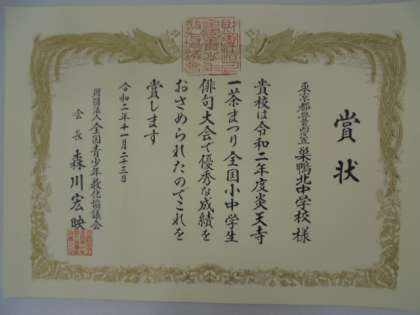 賞状
東京都豊島区立 巣鴨北中学校 様
貴校は令和二年度炎天寺
一茶まつり全国小中学生
俳句大会で優秀な成績を
おさめられたのでこれを
賞します
令和二年十一月二十三日
財団法人 全国青少年教化協議会
会長 森川宏映